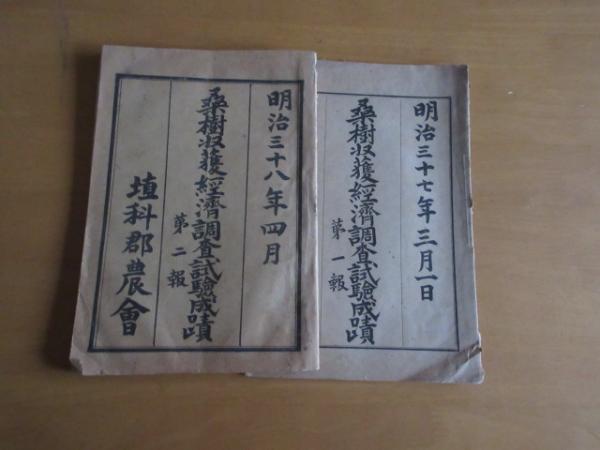 明治三十七年三月一日
桑樹收穫經濟調査試驗成蹟
第一報
明治三十八年四月
桑樹收穫經濟調査試驗成蹟
第二報
埴科郡農會